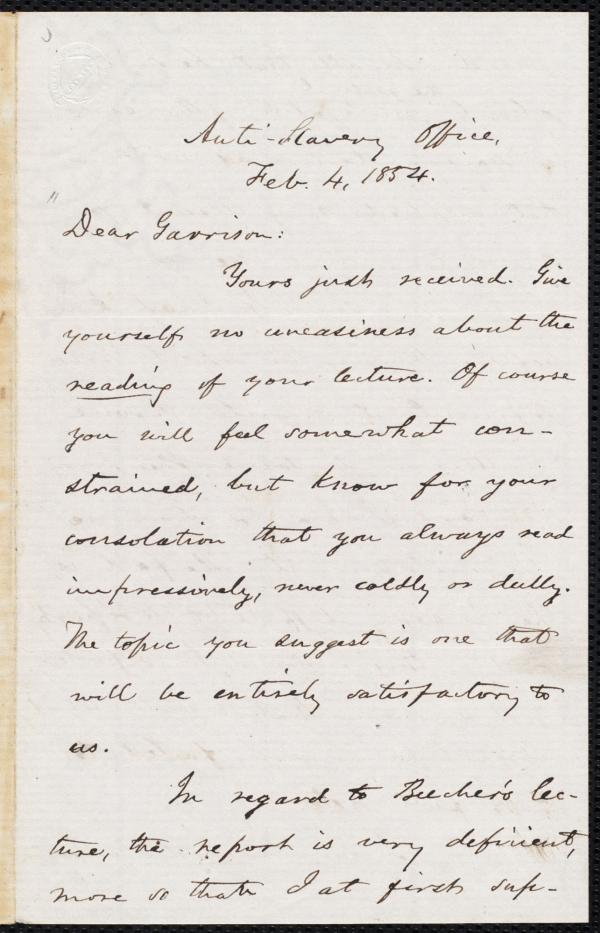 Anti-Slavery Office,
Feb. 4, 1854.
Dear Garrison:
Yours just received. Give
yourself no uneasiness about the
reading of your lecture. Of course
you will feel somewhat con-
strained, but know for your
consolation that you always read
impressively, never coldly or dully.
The topic you suggest is one that
will be entirely satisfactory to
us.
In regard to Beecher's lec-
ture, the report is very deficient,
more so than I at first sup-